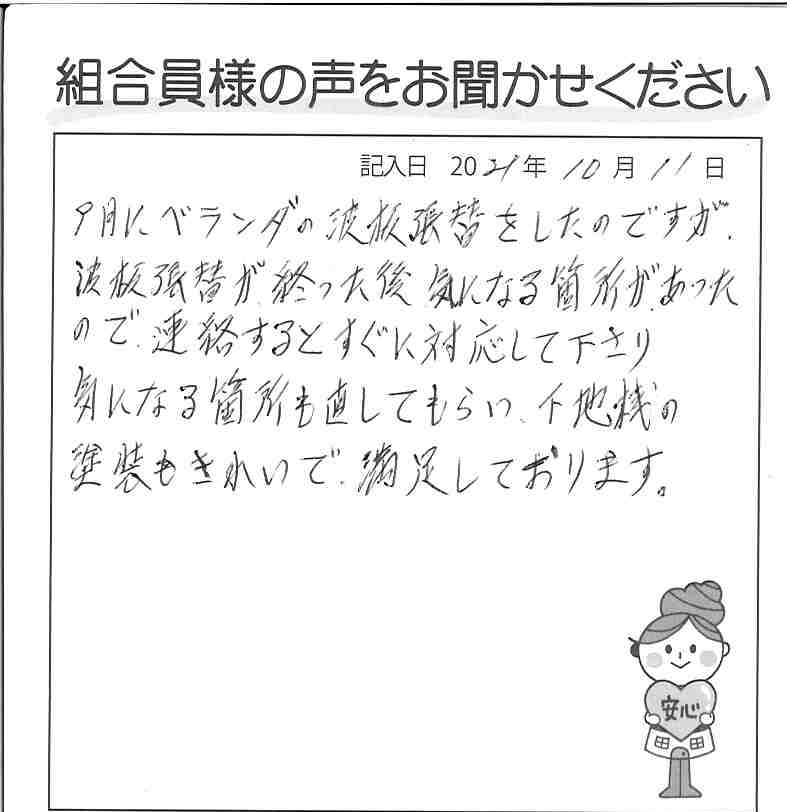 組合員様の声をお聞かせください
記入日 2021年 10月 11日
9月にベランダの波板張替をしたのですが、
波板張替が、終った後気になる箇所があった
ので、連絡するとすぐに対応して下さり
気になる箇所も直してもらい、下地桟の
塗装もきれいで、満足しております。
安心